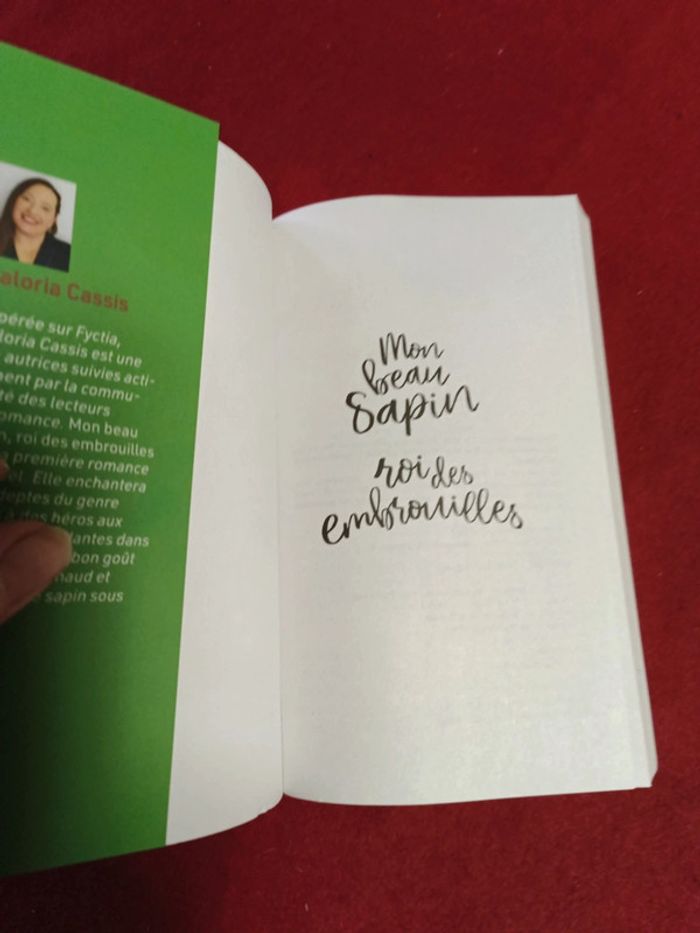 aloria Cassis
pérée sur Fyctia,
loria Cassis est une
autrices suivies acti-
ment par la commu-
té des lecteurs
omance. Mon beau
n, roi des embrouilles
première romance
el. Elle enchantera
deptes du genre
à des héros aux
lantes dans
bon goût
haud et
sapin sous
Mon
beau
Sapin
roi des
embrouilles